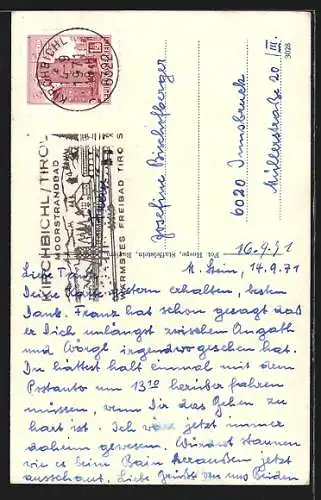 KIRCHBICHL
6322
KIRCHBICHL/TIROL
MOORSTRANDBAD
WÄRMSTES FREIBAD TIROLS
3025
Josefine Bischofberger
6020 Innsbruck
Müllerstraße 20/III.
16.9.71
14.9.71
Liebe
Deine Karte gestern erhalten, besten
Dank. Franz hat schon gesagt daß
er Dich unlängst zwischen Angath
und Wörgl irgendwo gesehen hat.
Du hättest halt einmal mit dem
Postauto um 13 10 herüber fahren
müssen, wenn Dir das Gehen zu
hart ist. Ich wär jetzt immer
daheim gewesen. Würdest staunen
wie es beim Bain heraußen jetzt
ausschaut. Liebe Grüße von uns Beiden